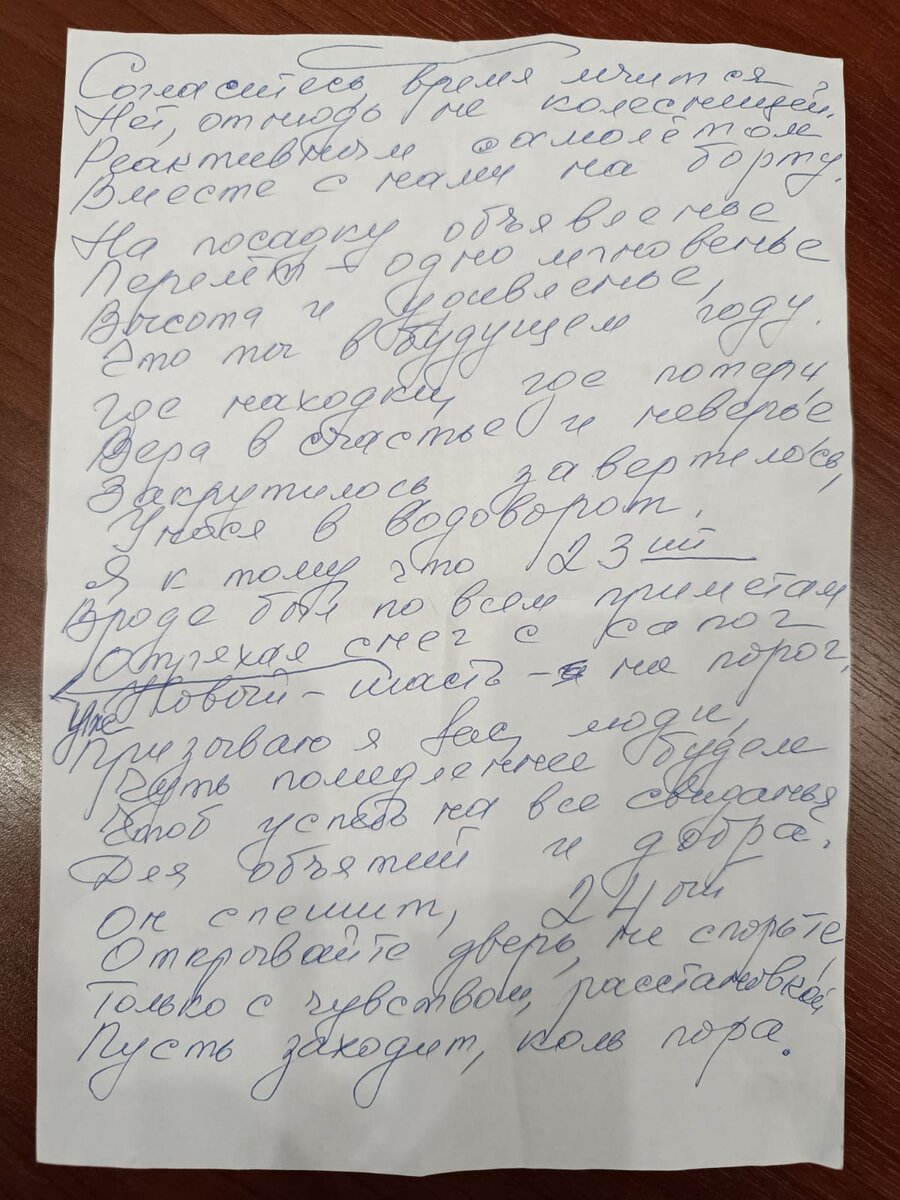 Согласитесь, время мчится
Нет, отнюдь не колесницей,
Реактивным самолётом
Вместе с нами на борту.
На посадку объявленье
Перелёт – одно мгновенье
Высота и удивленье,
Что ты в будущем году.
Где находки, где потери,
Вера в счастье и неверье
Закрутилось, завертелось,
Унося в водоворот.
Я к тому, что 23ий
Вроде был по всем приметам
Отряхая снег с сапог
Новый – шасть – на порог,
Уже
Призываю я вас, люди,
Чуть помедленнее будем
Чтоб успеть на все свиданья
Для объятий и добра.
Он спешит, 24ый
Открывайте дверь, не спорьте,
Только с чувством, расстановкой
Пусть заходит, коль пора.